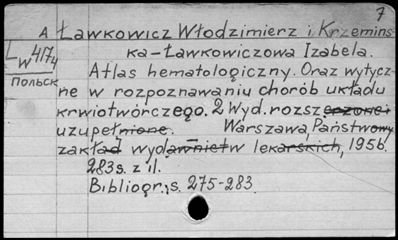 7
A Ławkowicz Włodzimierz i Krzemins-
ka-Ławkowiczowa Izabela.
L W 4174
Польск
Atlas hematologiczny. Oraz wytycz-
ne w rozpoznawaniu chorób układu
krwiotwórczego. 2 Wyd. rozszerzone i
uzupełnione. Warszawa, Państwowy
zakład wydawnictw lekarskich, 1956.
283 s. z il.
Bibliogr.; s. 275-283.